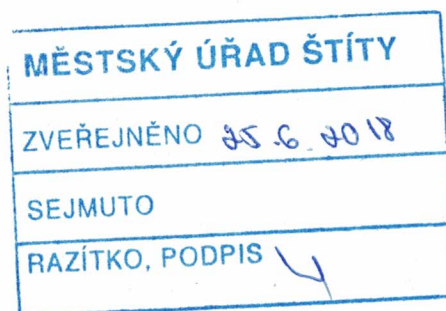 MĚSTSKÝ ÚŘAD ŠTÍTY
ZVEŘEJNĚNO 25.6.2018
SEJMUTO
RAZÍTKO, PODPIS